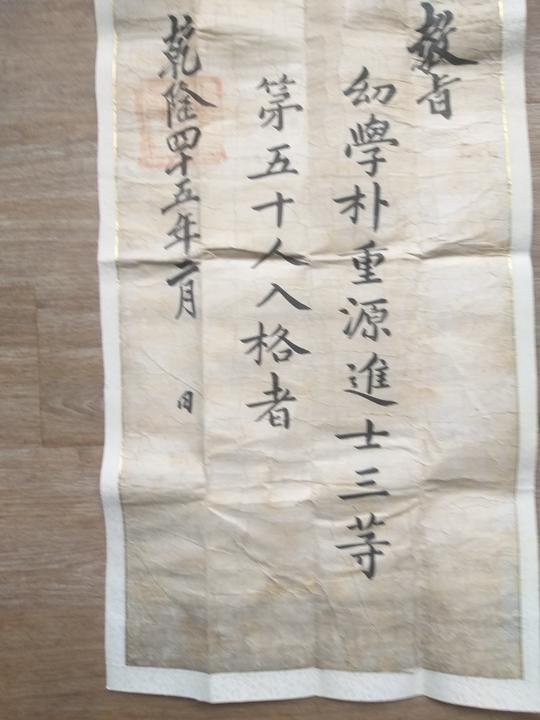 敎旨
幼學朴重源進士三等
第五十人入格者
乾隆四十五年二月 日